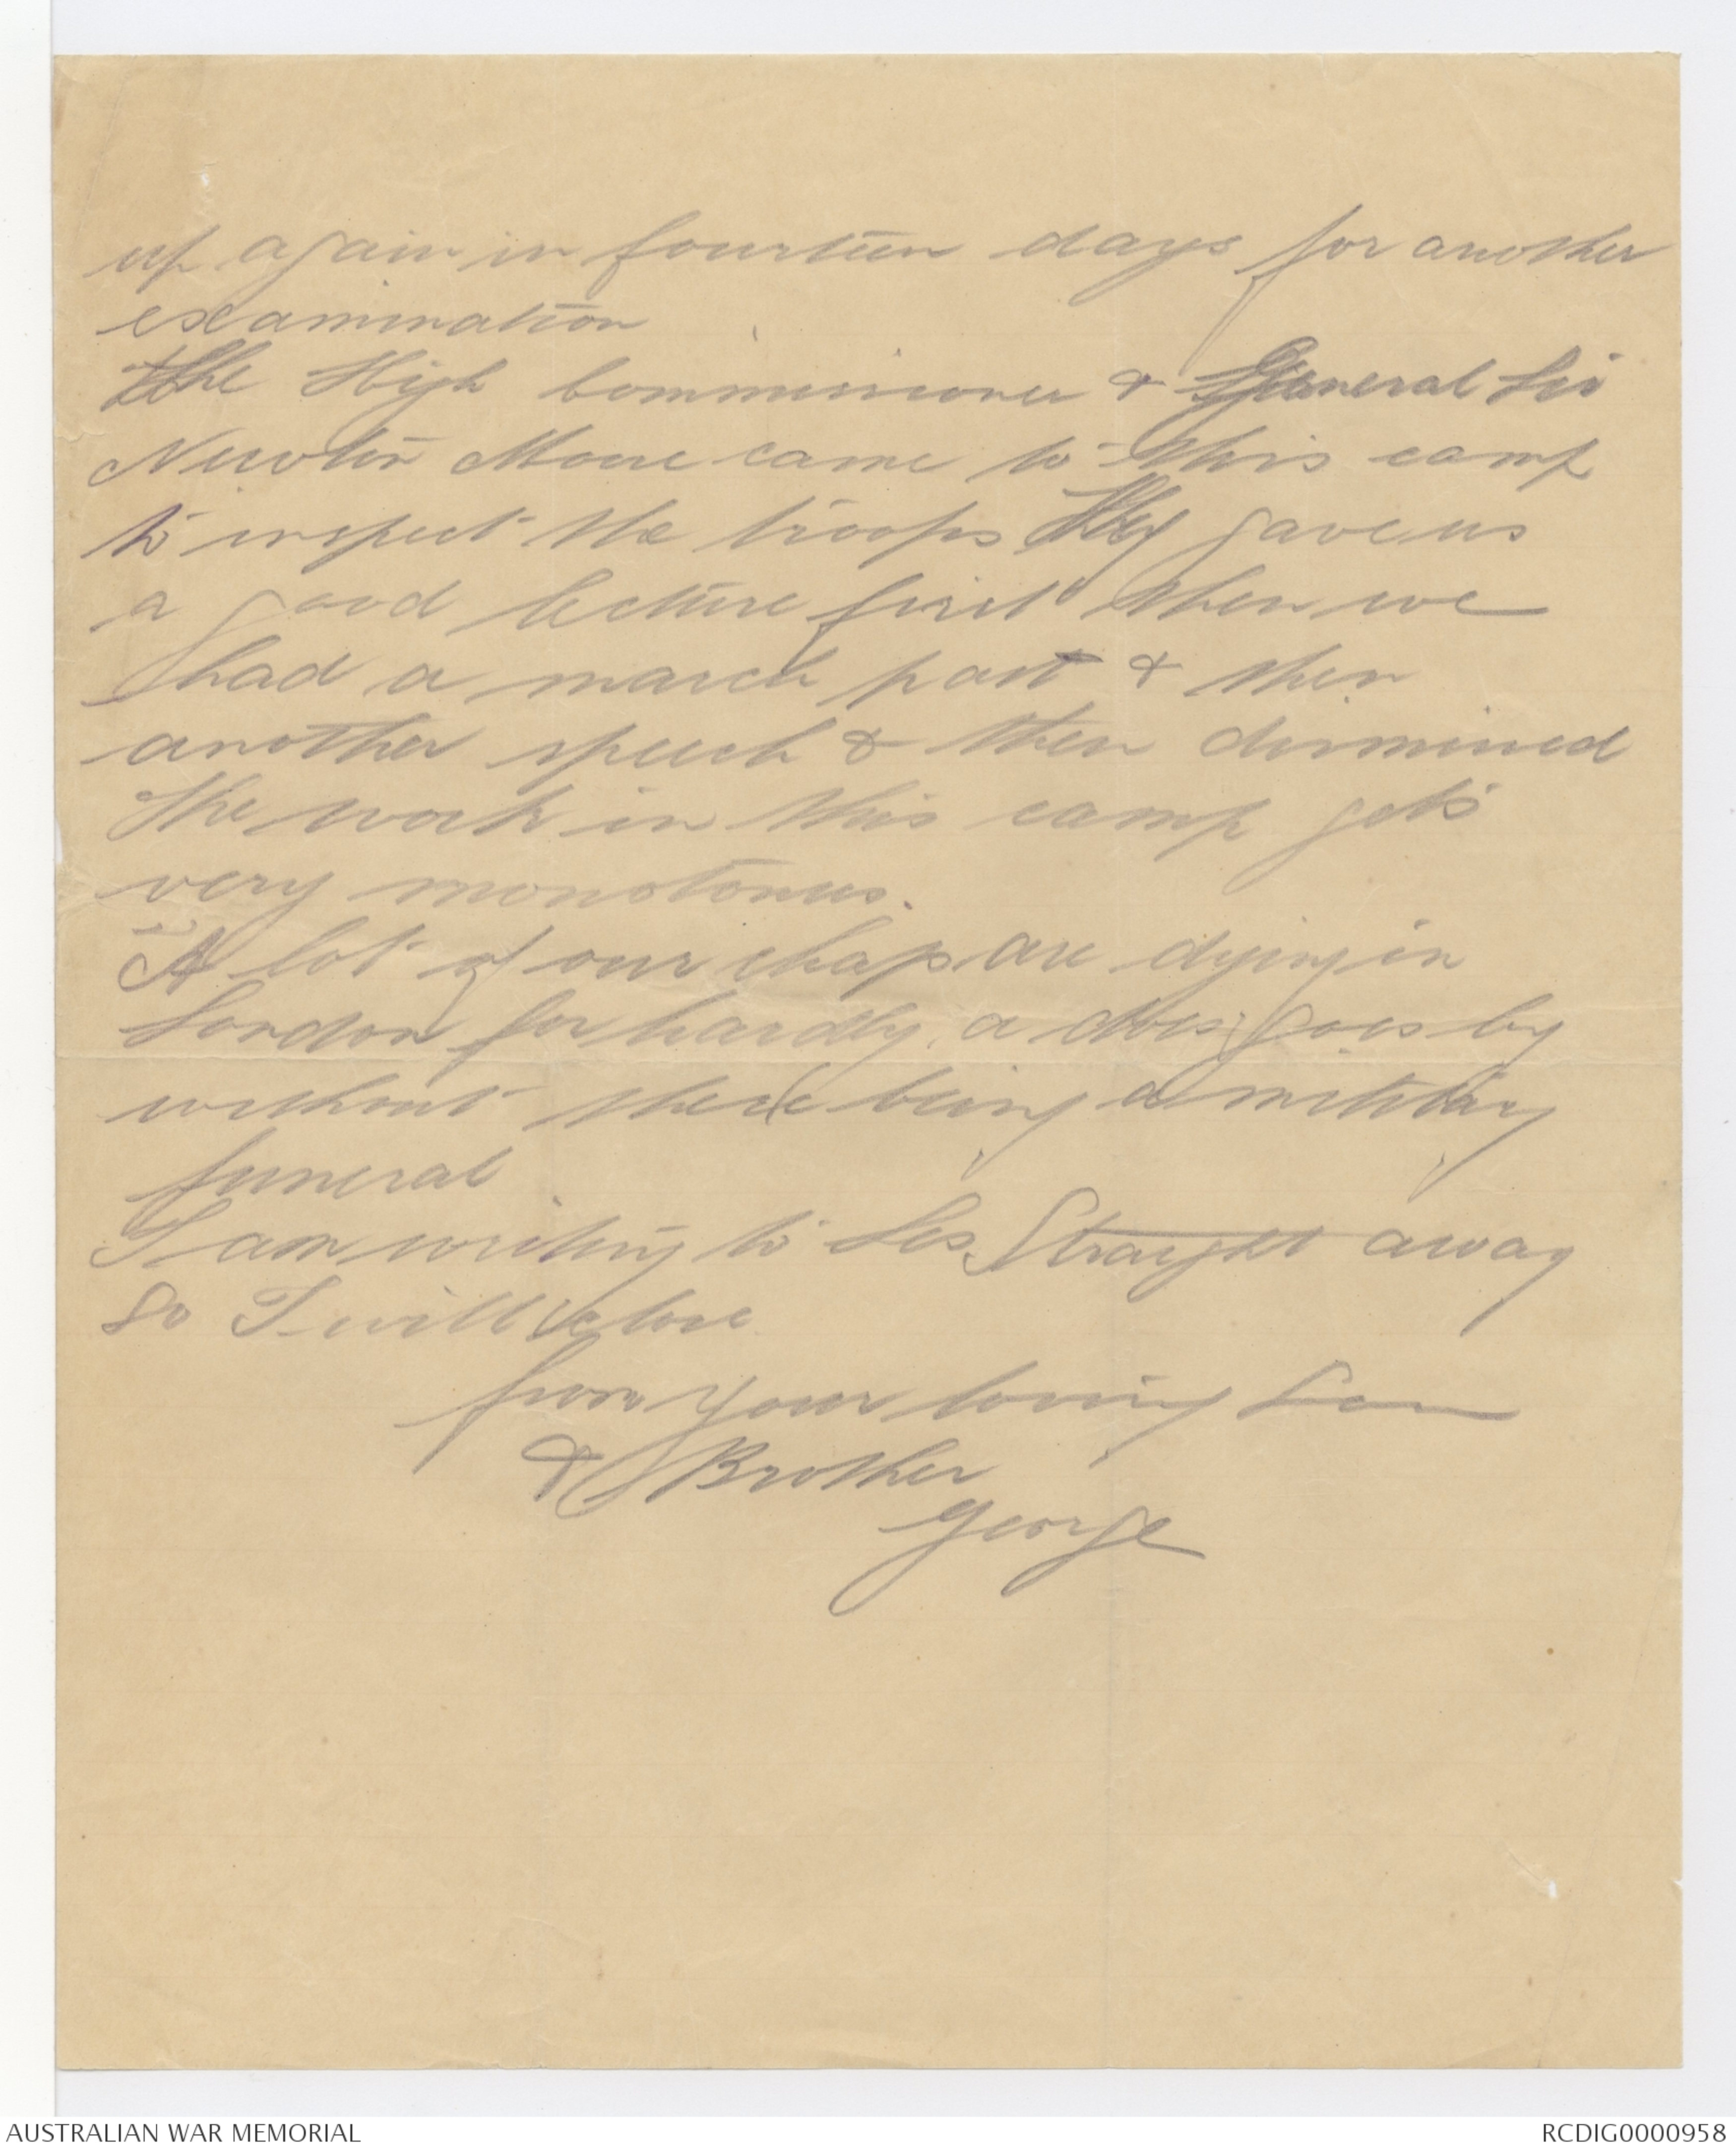 up again in fourteen days for another
examination
The High Commissioner & General Sir
Newton Moore came to this camp
to inspect the troops They gave us
a good lecture first then we
had a march past & then
another speech & then dismissed
The work in this camp gets
very monotonus.
A lot of our chaps are dying in
London for hardly a goes by
without there being a military
funeral
I am writing to Les Straight away
So I will close
from your loving Son
& Brother
George
AUSTRALIAN WAR MEMORIAL
RCDIG0000958